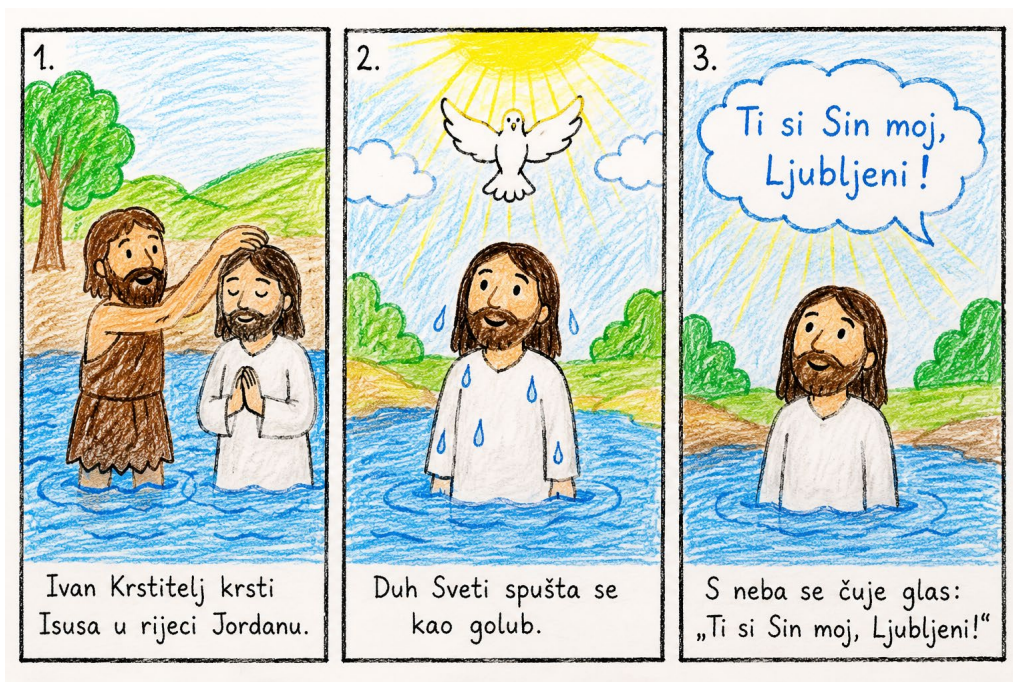 1.
Ivan Krstitelj krsti
Isusa u rijeci Jordanu.
2.
Duh Sveti spušta se
kao golub.
3.
Ti si Sin moj,
Ljubljeni!
S neba se čuje glas:
„Ti si Sin moj, Ljubljeni!“